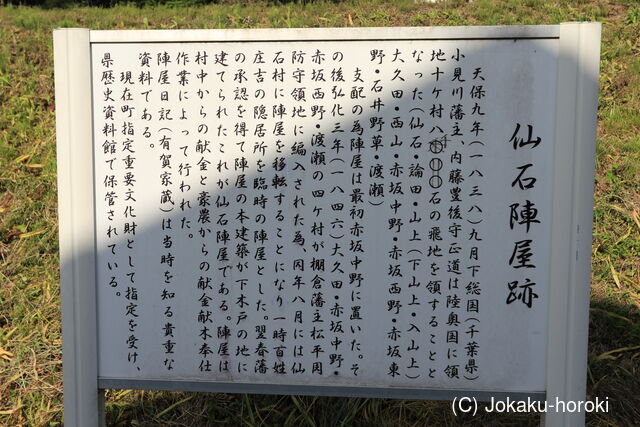 仙石陣屋跡
天保九年(一八三八)九月下総国(千葉県)
小見川藩主、内藤豊後守正道は陸奥国に領
地十ケ村八〇〇石の飛地を領することと
なった(仙石・論田・山上(下山上・入山上)
大久田・西山・赤坂中野・赤坂西野・赤坂東
野・石井野草・渡瀬)
支配の為陣屋は最初赤坂中野に置いた。そ
の後弘化三年(一八四六)大久田・赤坂中野・
赤坂西野・渡瀬の四ケ村が棚倉藩主松平周
防守領地に編入された為、同年八月には仙
石村に陣屋を移転することになり一時百姓
庄吉の隠居所を臨時の陣屋とした。翌春藩
の承認を得て陣屋の本建築が下木戸の地に
建てられたこれが仙石陣屋である。陣屋は
村中からの献金と豪農からの献金献木奉仕
作業によって行われた。
陣屋日記(有賀家蔵)は当時を知る貴重な
資料である。
現在町指定重要文化財として指定を受け、
県歴史資料館で保管されている。
(C) Jokaku-horoki